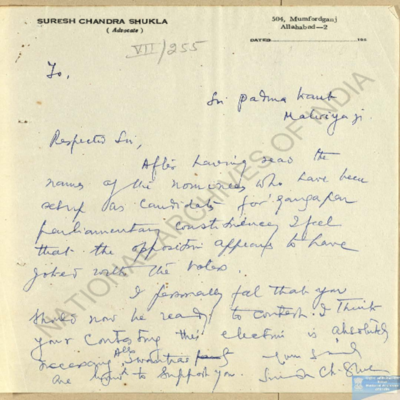 SURESH CHANDRA SHUKLA
( Advocate )
504, Mumfordganj
Allahabad—2
DATED
VII/255
To,
Sri Padma Kant
Malviya ji
Respected Sir,
After having read the
names of the nominees who have been
setup as candidates for gangapar
Parliamentary constituency I feel
that the opposition appears to have
joked with the voters.
I personally feel that you
should now be ready to contest. I think
your contesting this election is absolutely
necessary. All
are to support you.
NATIONAL ARCHIVES OF INDIA